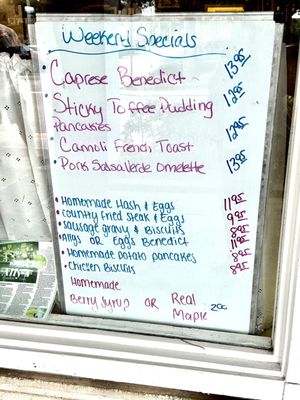 Weekend Specials
• Caprese Benedict 13.95
• Sticky Toffee Pudding
Pancakes 12.95
• Cannoli French Toast 12.95
• Pork Salsa Verde Omelette 13.95
• Homemade Hash & Eggs 11.95
• Country Fried Steak & Eggs 9.95
• Sausage gravy & Biscuits 8.95
OR Eggs Benedict 11.95
• Homemade potato pancakes 8.95
• Chicken Biscuits 8.95
Homemade
Berry Syrup OR Real
Maple 2.00